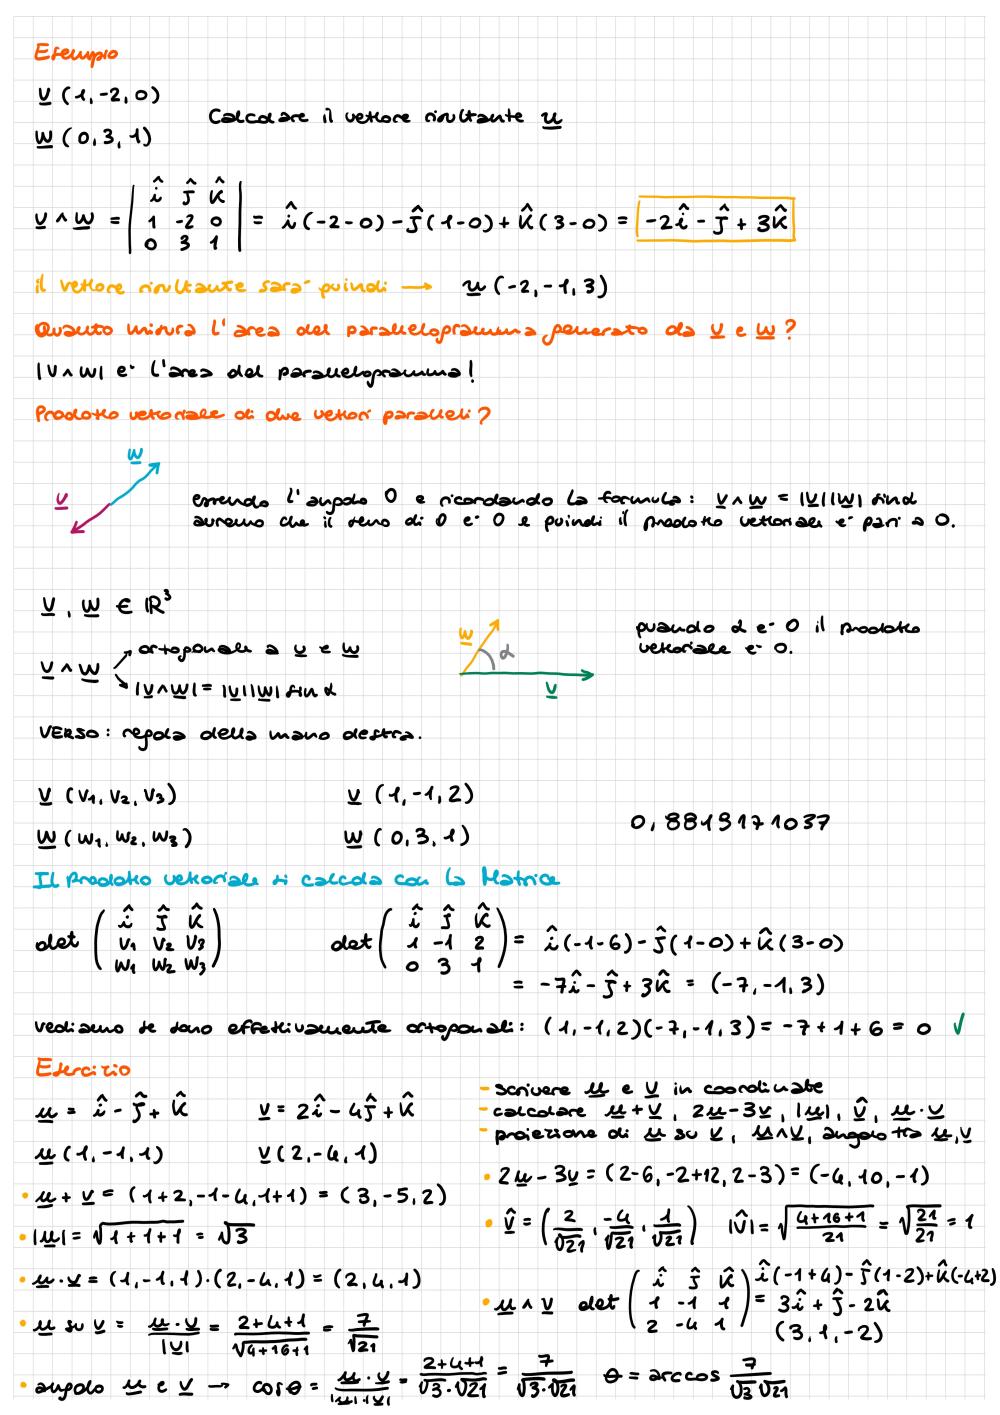 Esempio
v (1,-2,0)
Calcolare il vettore risultante u
w (0,3,1)
v ∧ w = | î ĵ k̂ | = î(-2-0) - ĵ(1-0) + k̂(3-0) = -2î - ĵ + 3k̂
1 -2 0
0 3 1
il vettore risultante sarà quindi → u (-2,-1,3)
Quanto misura l'area del parallelogramma generato da v e w?
|v∧w| è l'area del parallelogramma!
Prodotto vettoriale di due vettori paralleli?
w
v
essendo l'angolo 0 e ricordando la formula: v∧w = |v||w| sinα
avremo che il seno di 0 è 0 e quindi il prodotto vettoriale è pari a 0.
v, w ∈ ℝ³
v∧w
ortogonale a v e w
|v∧w| = |v||w| sin α
w
α
v
quando α è 0 il prodotto
vettoriale è 0.
VERSO: regola della mano destra.
v (v₁, v₂, v₃)
v (1,-1,2)
w (w₁, w₂, w₃)
w (0,3,1)
0,8819171037
Il prodotto vettoriale si calcola con la Matrice
det ( î ĵ k̂ )
v₁ v₂ v₃
w₁ w₂ w₃
det ( î ĵ k̂ ) = î(-1-6) - ĵ(1-0) + k̂(3-0)
1 -1 2
0 3 1
= -7î - ĵ + 3k̂ = (-7,-1,3)
vediamo se sono effettivamente ortogonali: (1,-1,2)(-7,-1,3) = -7+1+6 = 0 ✓
Esercizio
u = î - ĵ + k̂
v = 2î - 4ĵ + k̂
u (1,-1,1)
v (2,-4,1)
- scrivere u e v in coordinate
- calcolare u+v, 2u-3v, |u|, v̂, u·v
- proiezione di u su v, u∧v, angolo tra u,v
• u + v = (1+2,-1-4,1+1) = (3,-5,2)
• 2u - 3v = (2-6, -2+12, 2-3) = (-4, 10, -1)
• |u| = √1+1+1 = √3
• v̂ = (2/√21, -4/√21, 1/√21) |v̂| = √(4+16+1)/21 = √21/21 = 1
• u·v = (1,-1,1)·(2,-4,1) = (2,4,1)
• u∧v det ( î ĵ k̂ ) î(-1+4) - ĵ(1-2) + k̂(-4+2)
1 -1 1
2 -4 1
= 3î + ĵ - 2k̂
(3,1,-2)
• u su v = u·v/|v| = 2+4+1/√4+16+1 = 7/√21
• angolo u e v → cosθ = u·v/|u|·|v| = 2+4+1/√3·√21 = 7/√3·√21 θ = arccos 7/√3 √21